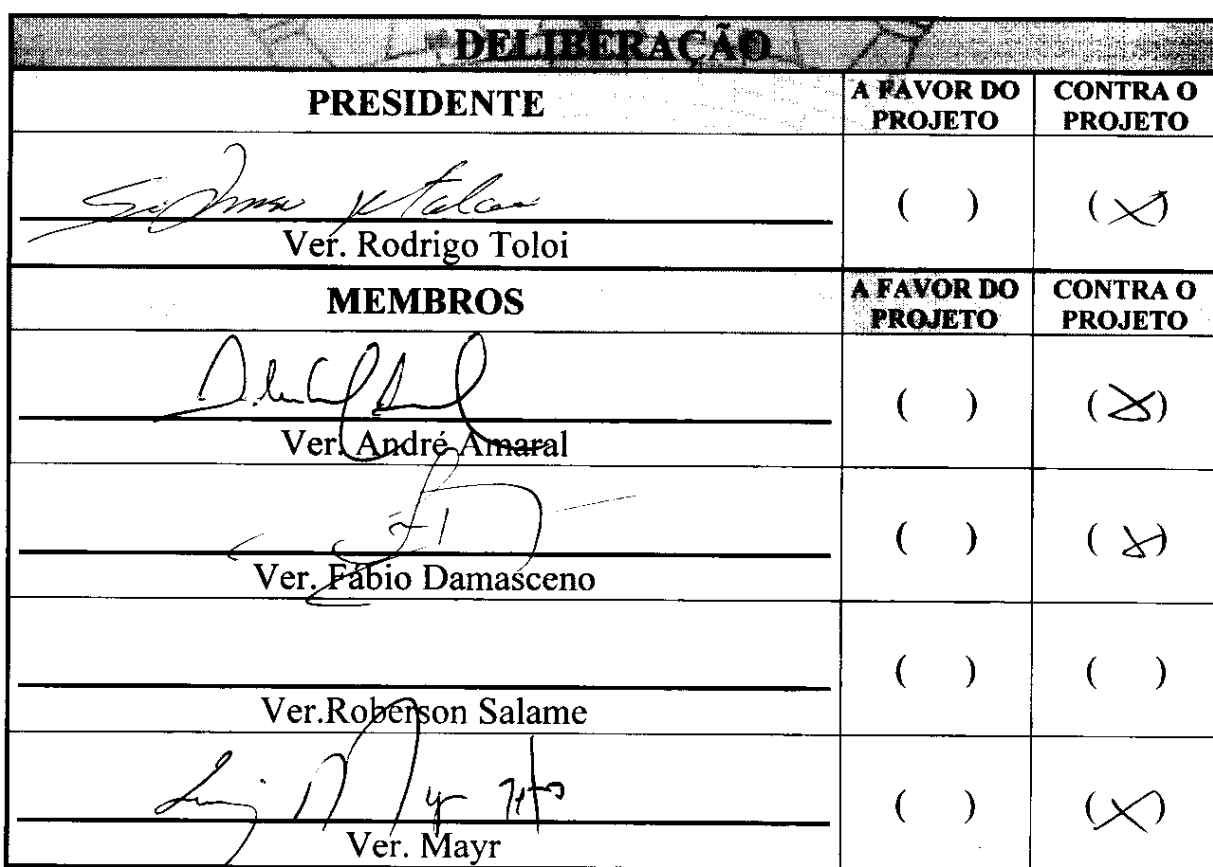 DELIBERAÇÃO
PRESIDENTE
A FAVOR DO PROJETO
CONTRA O PROJETO
( ) (X)
Ver. Rodrigo Toloi
MEMBROS
A FAVOR DO PROJETO
CONTRA O PROJETO
( ) (X)
Ver. André Amaral
( ) (X)
Ver. Fábio Damasceno
( ) ( )
Ver.Roberson Salame
( ) (X)
Ver. Mayr